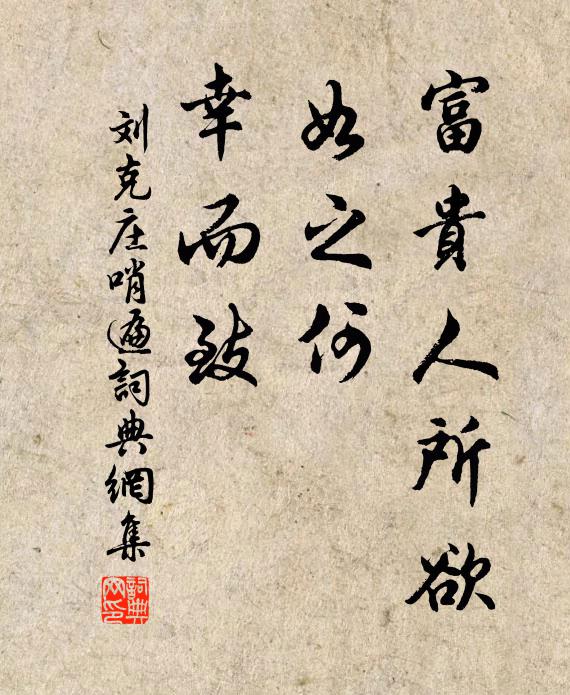 富貴人所欲
如之何
幸而致
刘克庄哨遍詞典網集
詞典網印